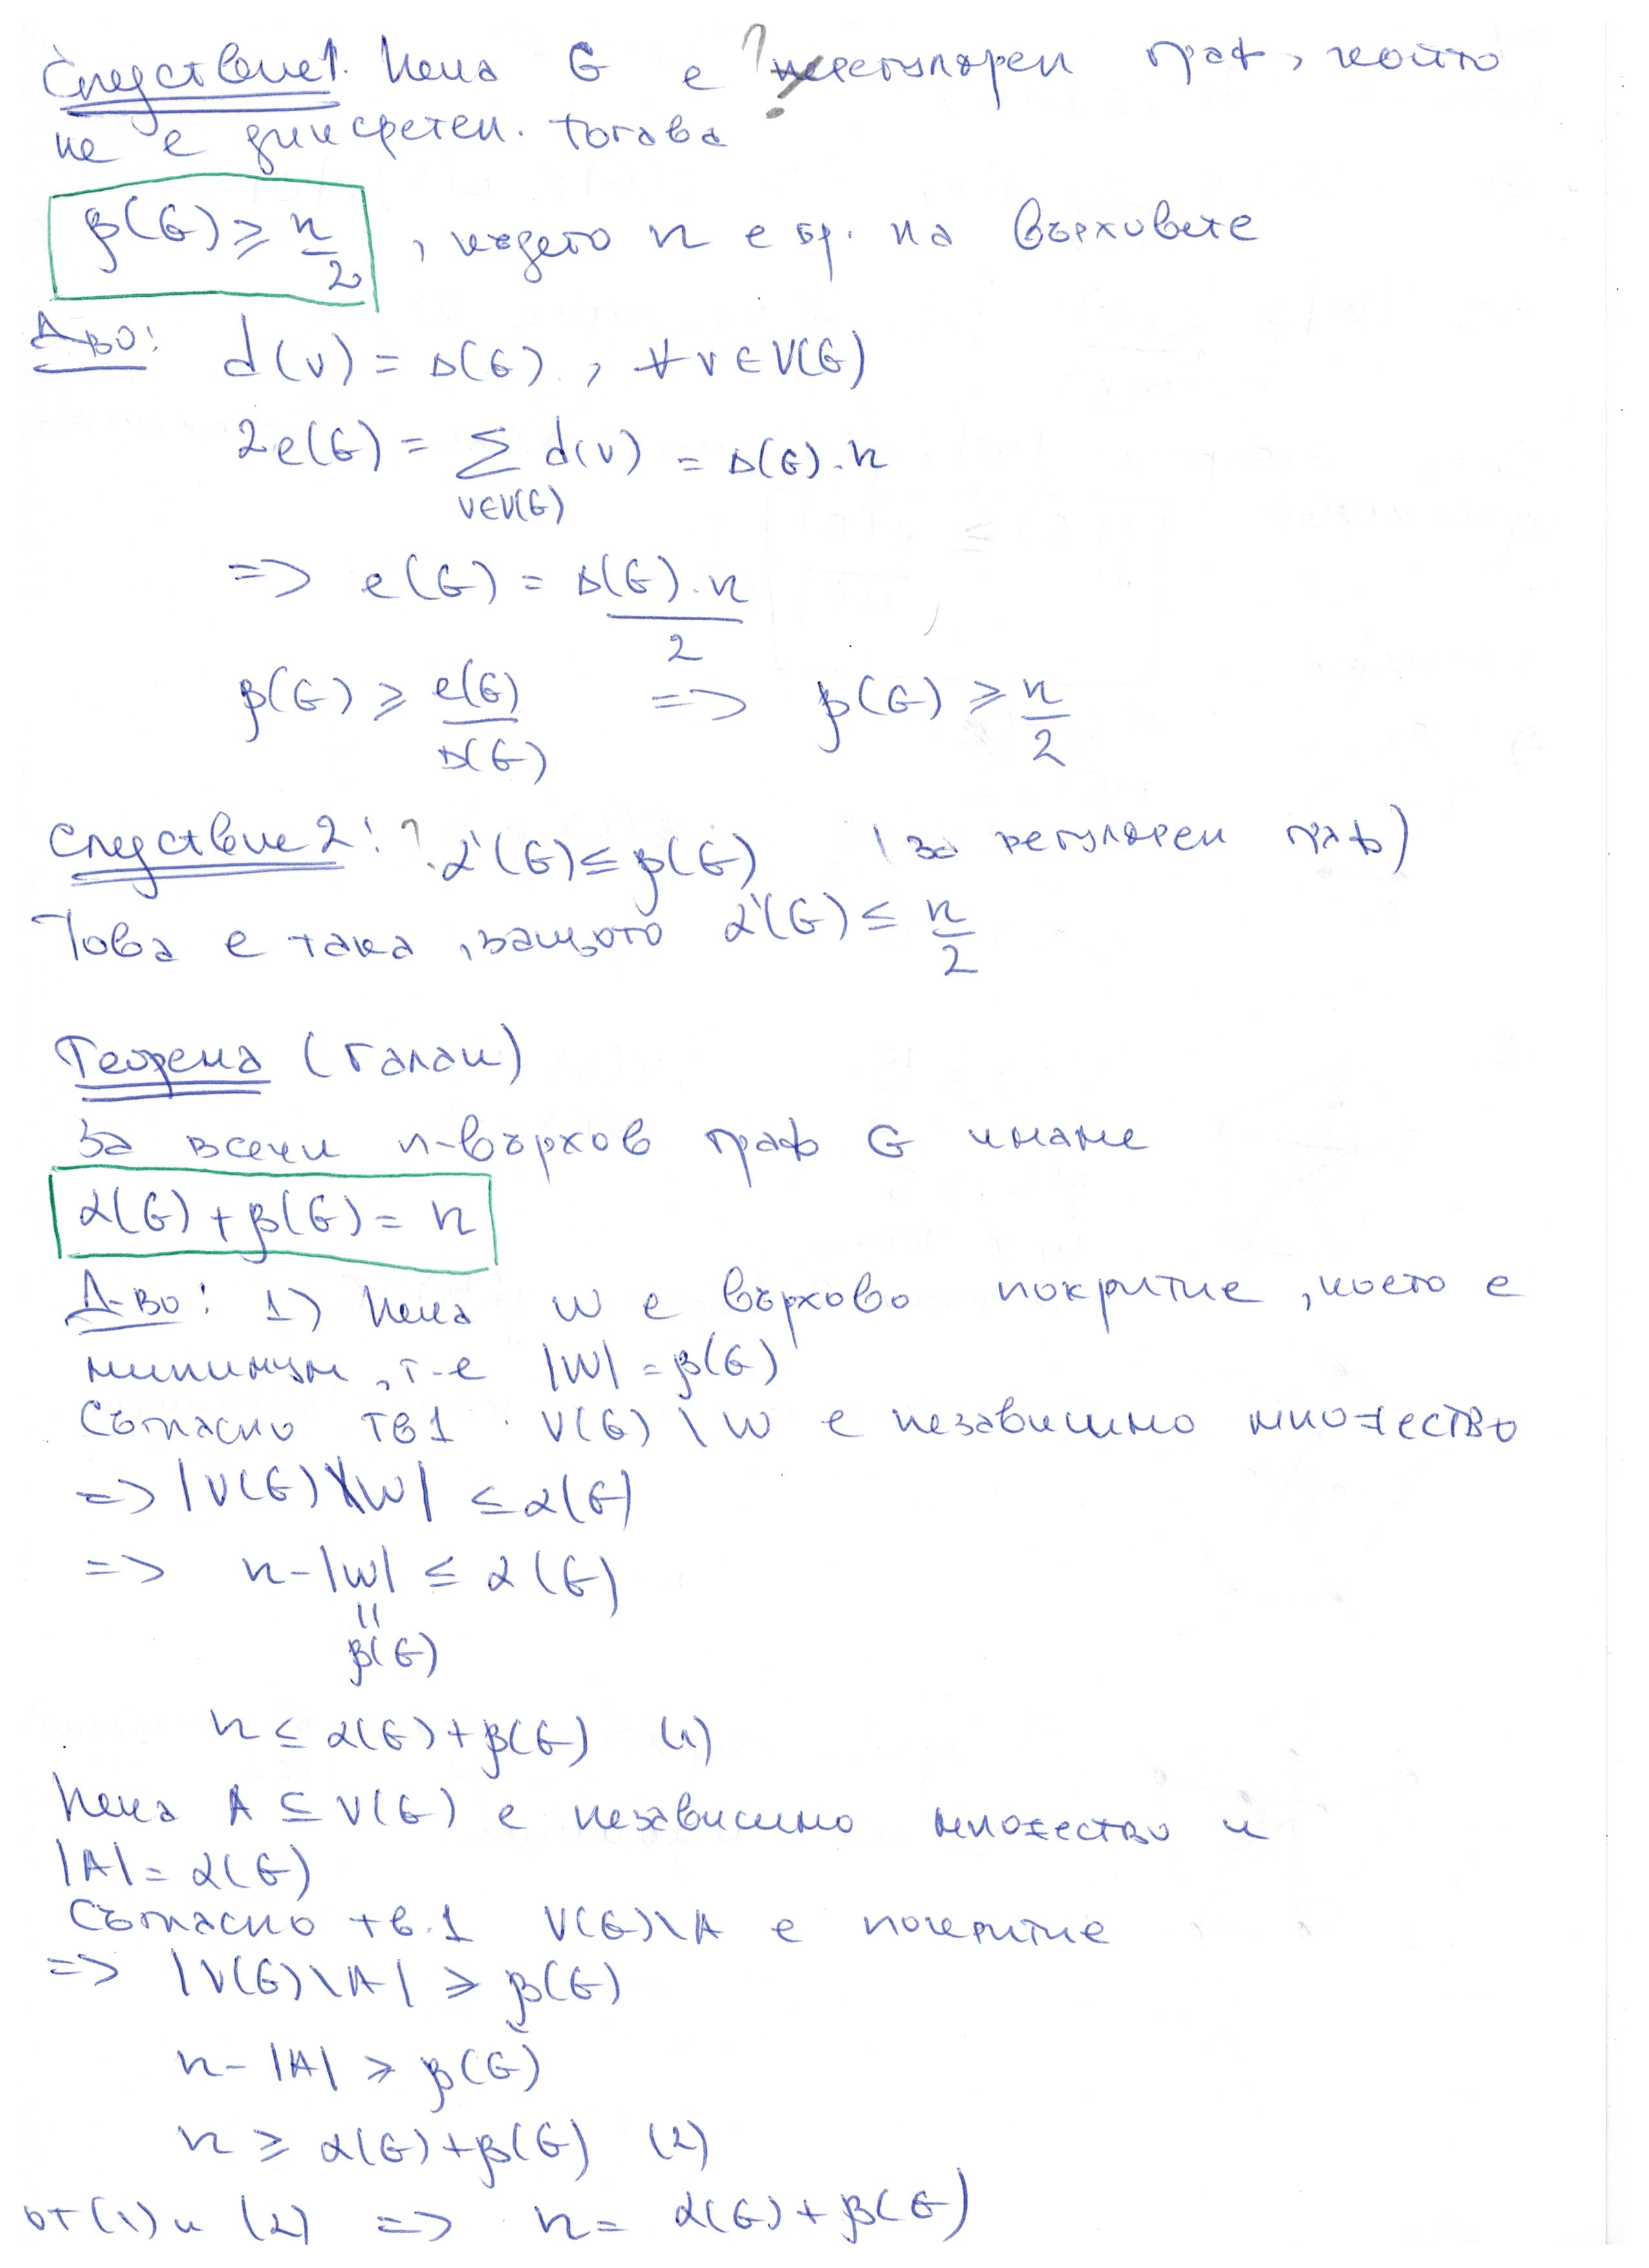 Следствие 1. Нека G е ? регулярен граф, който
не е дискретен. Тогава
β(G) ≥ n/2 , където n е бр. на върховете
Д-во: d(v) = Δ(G) , ∀ v ∈ V(G)
2e(G) = ∑ d(v) = Δ(G) . n
v∈V(G)
=> e(G) = Δ(G) . n / 2
β(G) ≥ e(G)/Δ(G) => β(G) ≥ n/2
Следствие 2: ? α'(G) ≤ β(G) (за регулярен граф)
Това е така, защото α'(G) ≤ n/2
Теорема (Галаи)
За всеки n-върхов граф G имаме
α(G) + β(G) = n
Д-во: 1) Нека W е върхово покритие, което е
минимум, т-е |W| = β(G)
Съгласно тв 1 V(G) \ W е независимо множество
=> |V(G) \ W| ≤ α(G)
=> n - |W| ≤ α(G)
||
β(G)
n ≤ α(G) + β(G) (1)
Нека A ⊆ V(G) е независимо множество и
|A| = α(G)
Съгласно тв. 1 V(G) \ A е покритие
=> |V(G) \ A| ≥ β(G)
n - |A| ≥ β(G)
n ≥ α(G) + β(G) (2)
от (1) и (2) => n = α(G) + β(G)